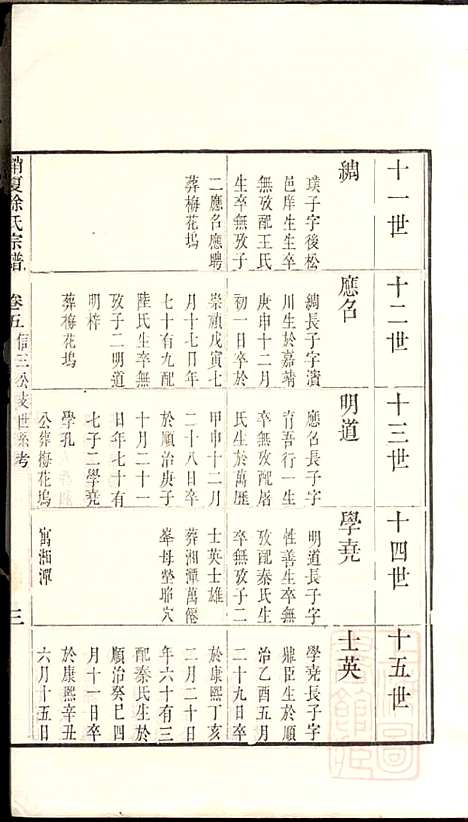 十一世
綢
璞子字後松
邑庠生生卒
無攷配王氏
生卒無攷子
二應名應聘
葬梅花塢
十二世
應名
綢長子字濱
川生於嘉靖
庚申十二月
初一日卒於
崇禎戊寅七
月十七日年
七十有九配
陸氏生卒無
攷子二明道
明梓
葬梅花塢
十三世
明道
應名長子字
育吾行一生
卒無攷配屠
氏生於萬歷
甲申十二月
二十八日卒
於順治庚子
十月二十一
日年七十有
七子二學堯
學孔
公葬梅花塢
十四世
學堯
明道長子字
性善生卒無
攷配秦氏生
卒無攷子二
士英士雄
葬湘潭萬僊
峯母塋聯穴
寓湘潭
十五世
士英
學堯長子字
鼐臣生於順
治乙酉五月
二十九日卒
於康熙丁亥
二月二十日
年六十有三
配秦氏生於
順治癸巳四
月十一日卒
於康熙辛丑
六月十五日
銷夏徐氏宗譜 卷五 信三公支世系考 三